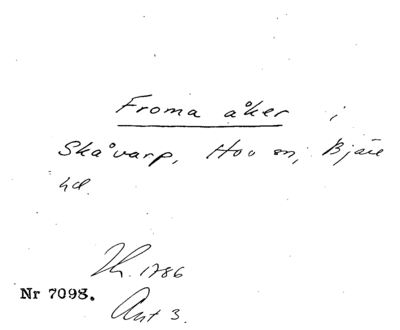 Froma åker i
Skåvarp, Hov sn, Bjäre
hd.
Th. 1786
Nr 7098.
Ant 3.